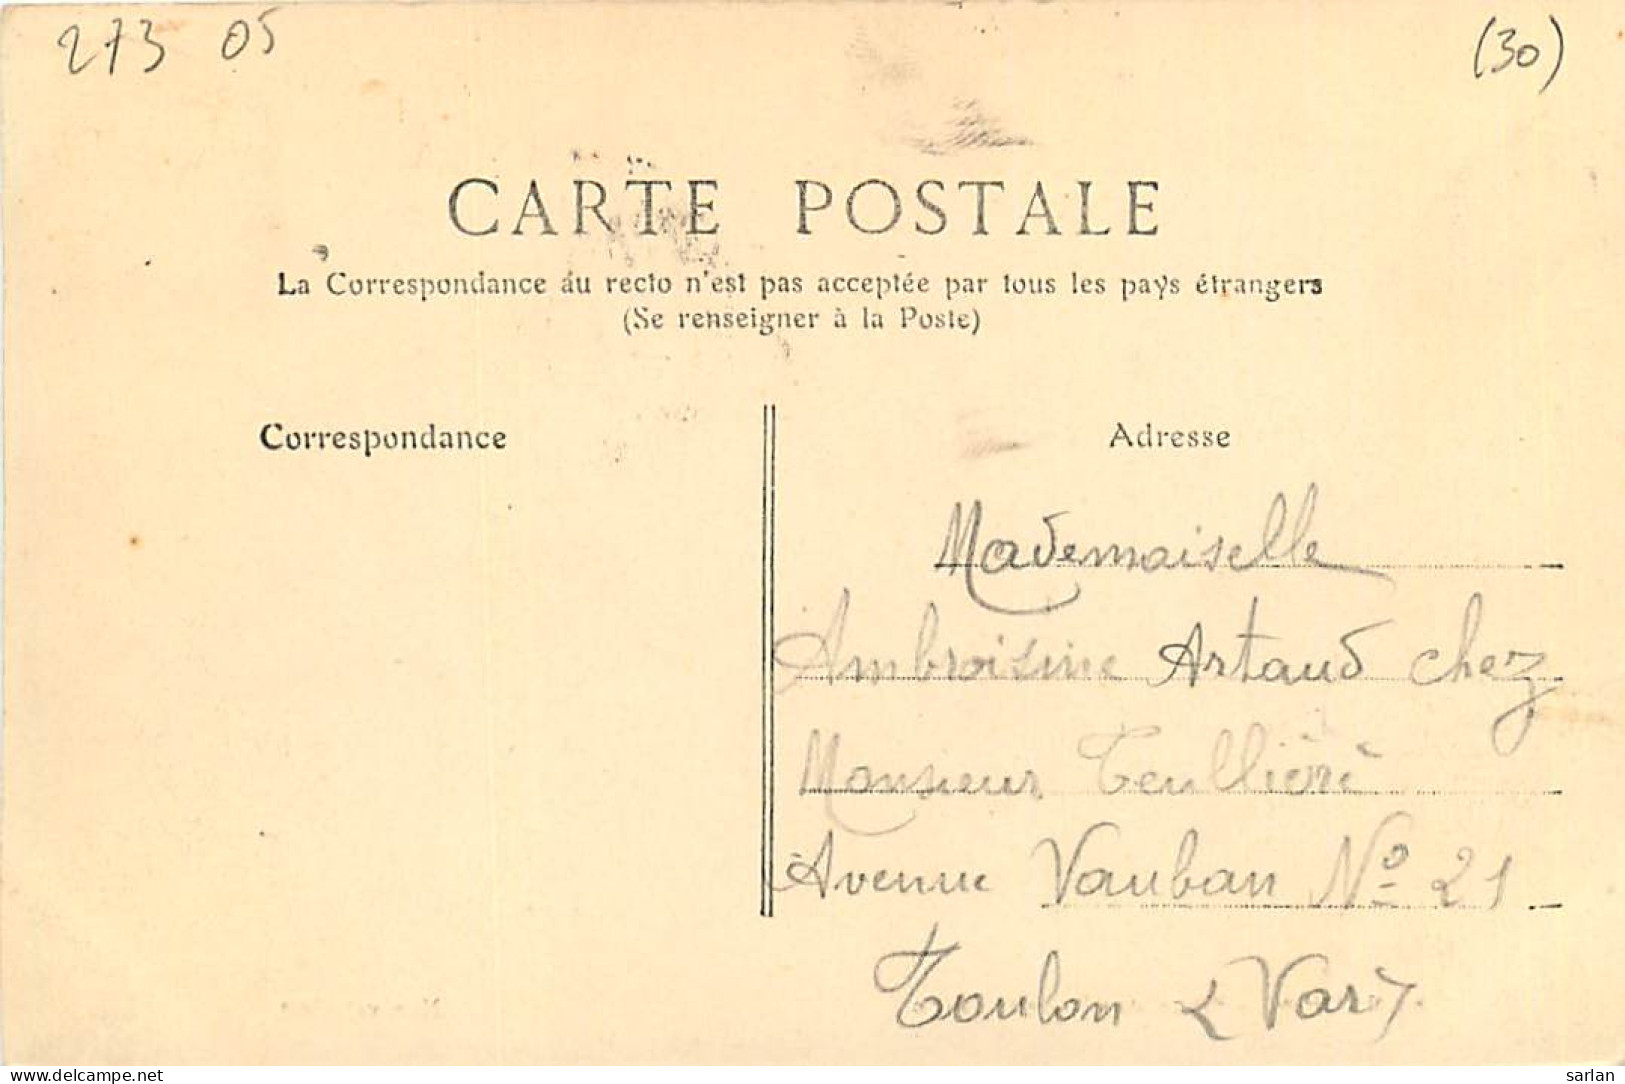 273 05
(30)
CARTE POSTALE
La Correspondance au recto n'est pas acceptée par tous les pays étrangers
(Se renseigner à la Poste)
Correspondance
Adresse
Mademoiselle
Ambroisine Artaud chez
Monsieur Teullière
Avenue Vauban Nº 21
Toulon (Var)
delcampe.net
sarlan